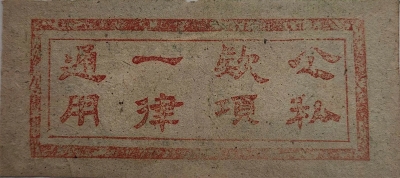 公私
款項
一律
通用